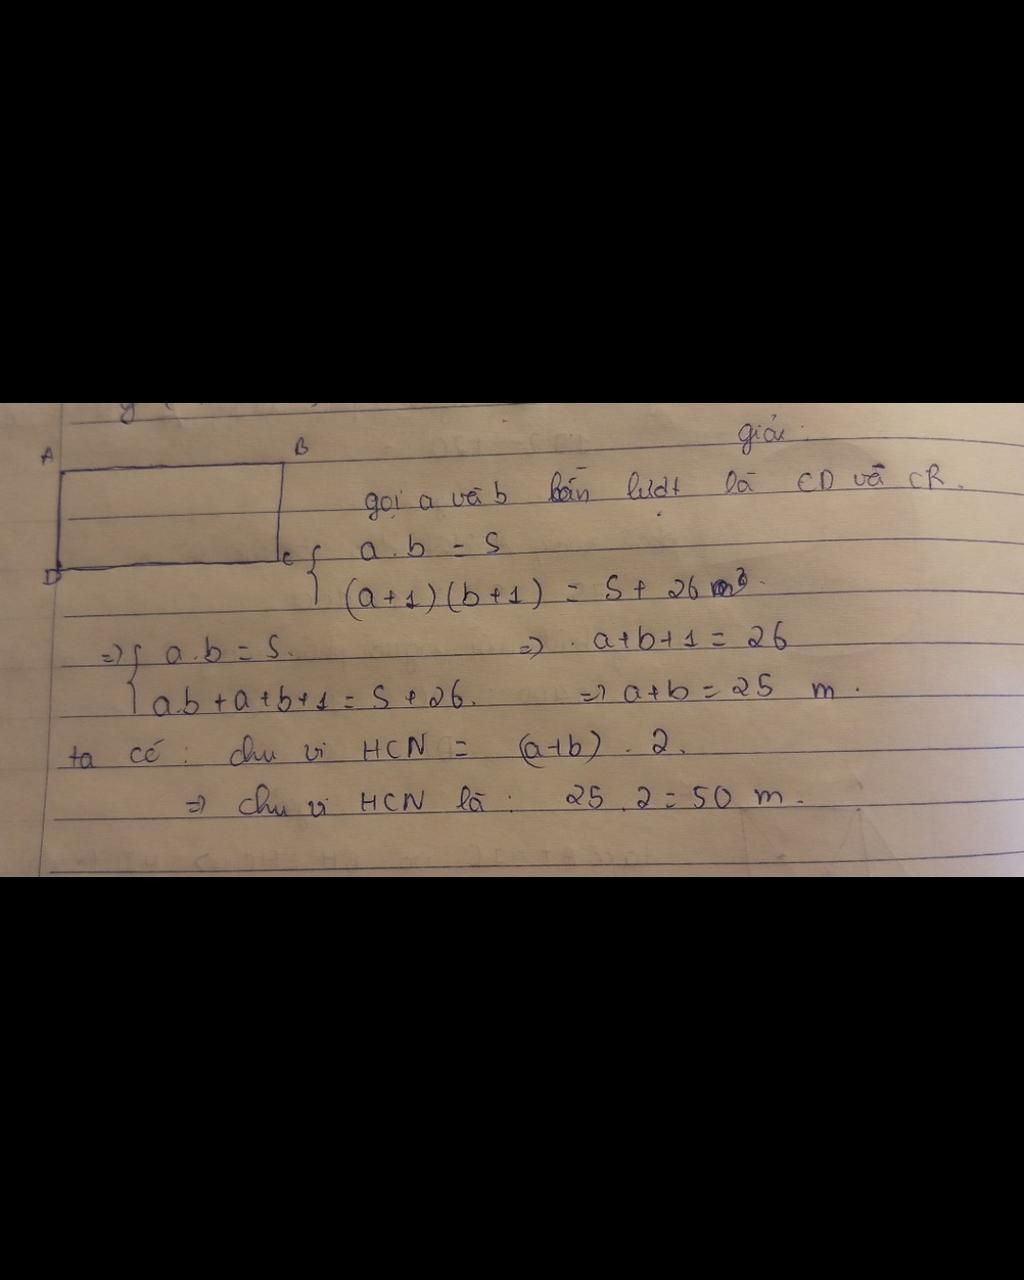 giải:
A B
gọi a và b lần lượt là CD và CR.
D C { a.b = S
(a+1)(b+1) = S + 26 m².
=> { a.b = S. => a+b+1 = 26
a.b + a+b+1 = S + 26. => a+b = 25 m.
ta có: chu vi HCN = (a+b).2.
=> chu vi HCN là: 25.2 = 50 m.